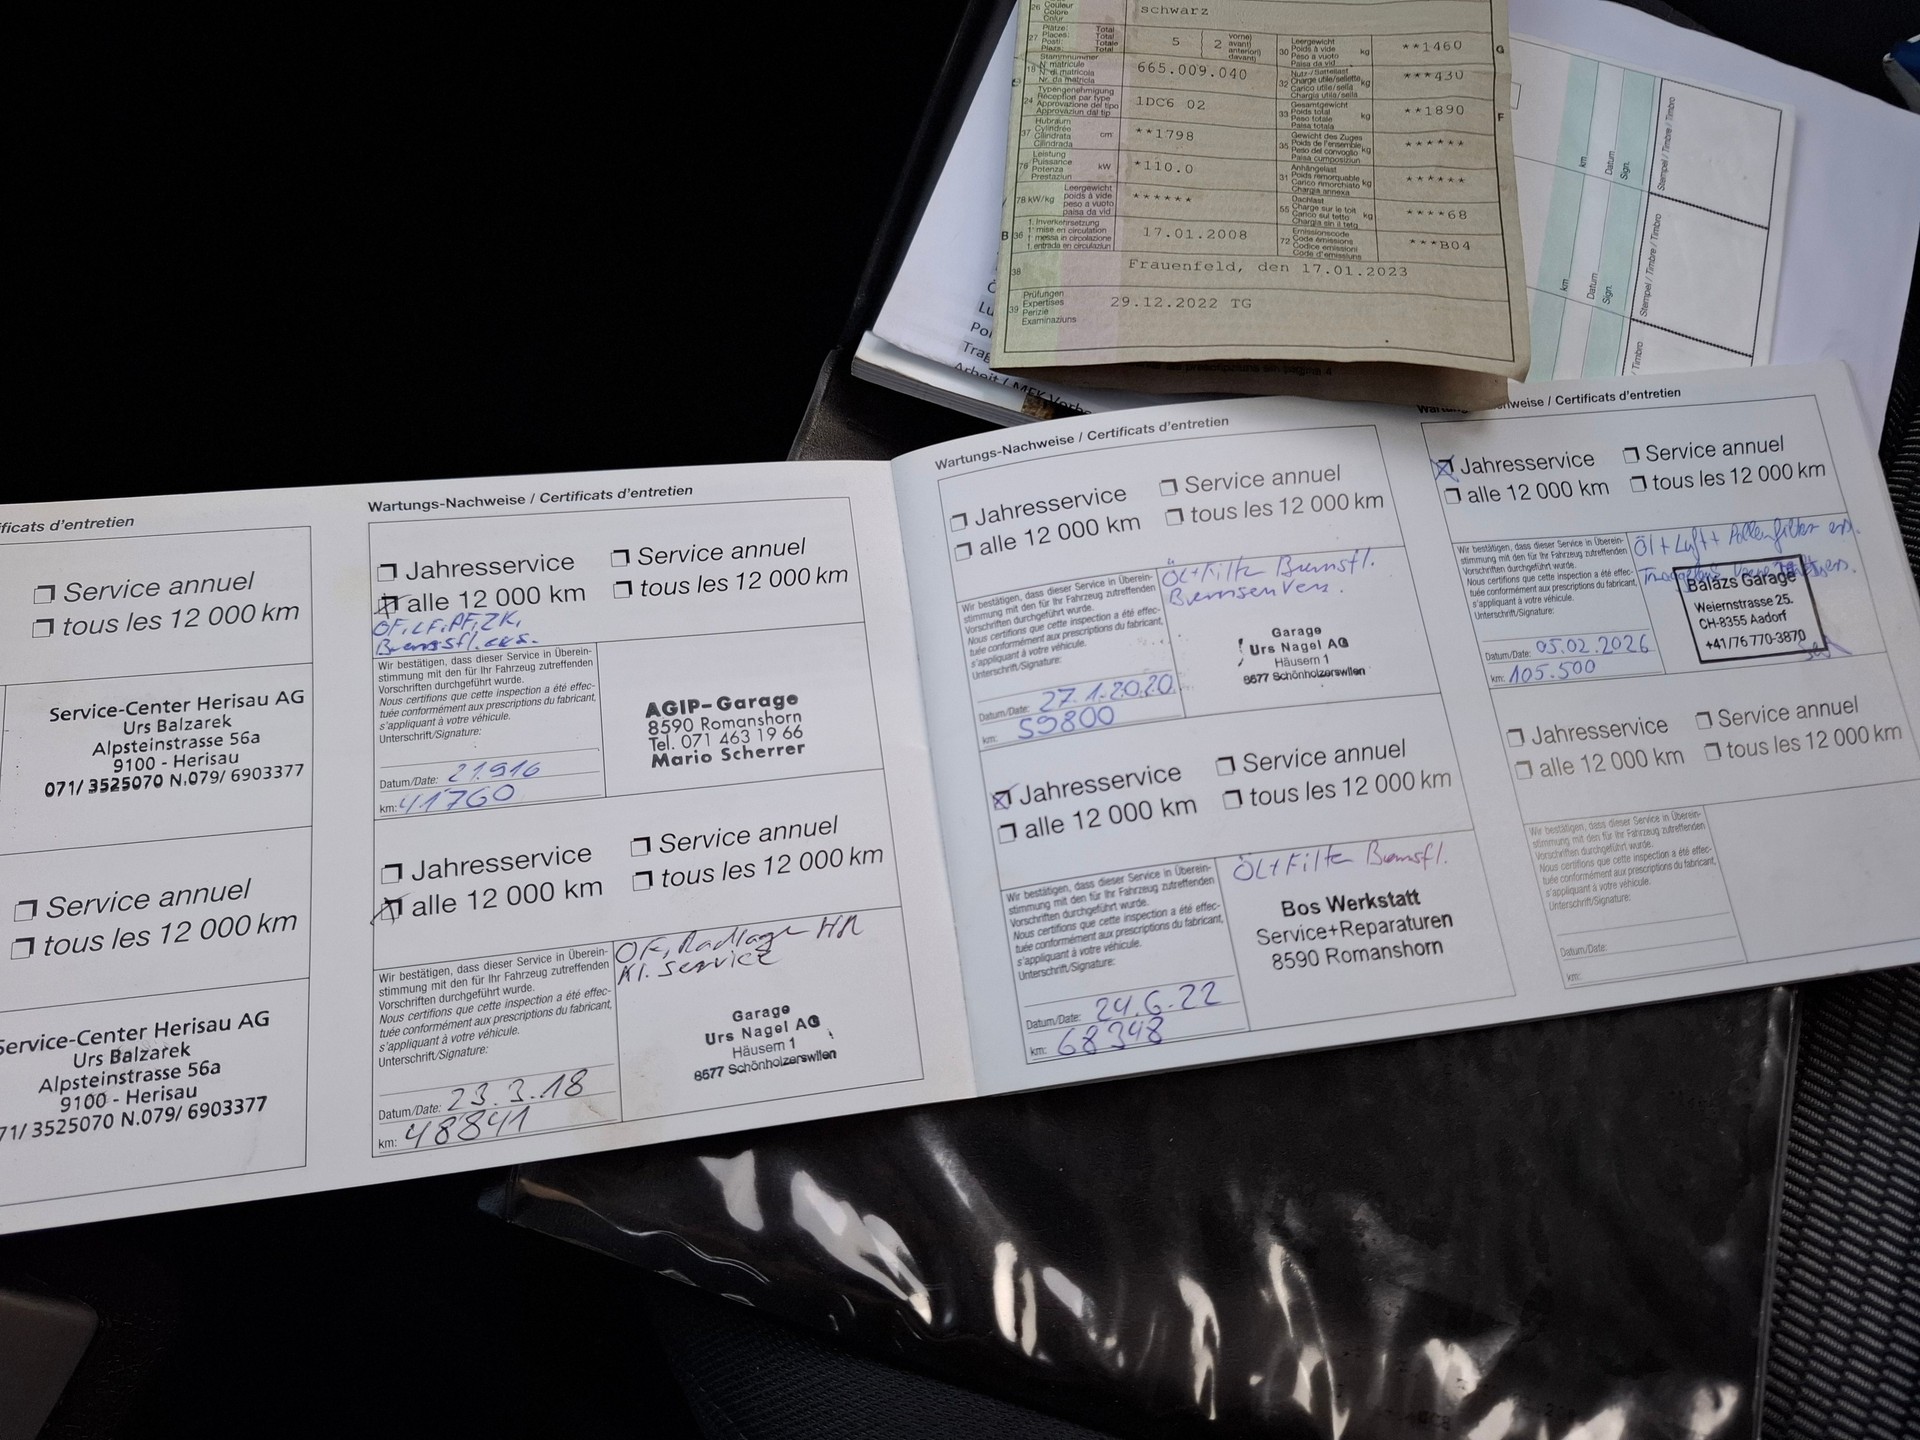 26 Couleur
Colore
Colur
schwarz
27 Plätze: Total
Places: Total
Posti: Totale
Plazs: Total
5
2
vorne)
avant)
anteriori)
davant)
30 Leergewicht
Poids à vide
Peso a vuoto
Paisa da vid
kg
**1460
G
18 Stammnummer
N° matricule
N. di matricola
Nr. da matricla
665.009.040
32 Nutz-/Sattellast
Charge utile/sellette
Carico utile/sella
Chargia utila/sella
kg
***430
24 Typengenehmigung
Réception par type
Approvazione del tipo
Approvaziun dal tip
1DC6 02
33 Gesamtgewicht
Poids total
Peso totale
Paisa totala
kg
**1890
F
37 Hubraum
Cylindrée
Cilindrata
Cilindrada
cm³
**1798
35 Gewicht des Zuges
Poids de l'ensemble
Peso del convoglio
Paisa cumposiziun
kg
******
76 Leistung
Puissance
Potenza
Prestaziun
kW
*110.0
31 Anhängelast
Poids remorquable
Carico rimorchiato
Chargia annexa
kg
******
78 kW/kg
Leergewicht
poids à vide
peso a vuoto
paisa da vid
******
55 Dachlast
Charge sur le toit
Carico sul tetto
Chargia sin il tetg
kg
****68
B 36 1. Inverkehrsetzung
1re mise en circulation
1a messa in circolazione
1. entrada en circulaziun
17.01.2008
72 Emissionscode
Code émissions
Codice emissioni
Code d'emissiuns
***B04
38
Frauenfeld, den 17.01.2023
39 Prüfungen
Expertises
Perizie
Examinaziuns
29.12.2022 TG
km
Datum
Sign.
Stempel / Timbre / Timbro
km
Datum
Sign.
Stempel / Timbre / Timbro
Timbro
Arbeit / MFK Vorb
ficats d'entretien
Service annuel
tous les 12 000 km
Service-Center Herisau AG
Urs Balzarek
Alpsteinstrasse 56a
9100 - Herisau
071/ 3525070 N.079/ 6903377
Service annuel
tous les 12 000 km
Service-Center Herisau AG
Urs Balzarek
Alpsteinstrasse 56a
9100 - Herisau
71/ 3525070 N.079/ 6903377
Wartungs-Nachweise / Certificats d'entretien
Jahresservice
Service annuel
alle 12 000 km
tous les 12 000 km
ÖF, LF, PF, ZK,
Bremsfl. ers.
Wir bestätigen, dass dieser Service in Überein-
stimmung mit den für Ihr Fahrzeug zutreffenden
Vorschriften durchgeführt wurde.
Nous certifions que cette inspection a été effec-
tuée conformément aux prescriptions du fabricant,
s'appliquant à votre véhicule.
Unterschrift/Signature:
AGIP-Garage
8590 Romanshorn
Tel. 071 463 19 66
Mario Scherrer
Datum/Date: 21.916
km: 41760
Jahresservice
Service annuel
alle 12 000 km
tous les 12 000 km
Wir bestätigen, dass dieser Service in Überein-
stimmung mit den für Ihr Fahrzeug zutreffenden
Vorschriften durchgeführt wurde.
Nous certifions que cette inspection a été effec-
tuée conformément aux prescriptions du fabricant,
s'appliquant à votre véhicule.
Unterschrift/Signature:
ÖF, Radlager HR
Kl. Service
Garage
Urs Nagel AG
Häusern 1
8577 Schönholzerswilen
Datum/Date: 23.3.18
km: 48841
Wartungs-Nachweise / Certificats d'entretien
Jahresservice
Service annuel
alle 12 000 km
tous les 12 000 km
Wir bestätigen, dass dieser Service in Überein-
stimmung mit den für Ihr Fahrzeug zutreffenden
Vorschriften durchgeführt wurde.
Nous certifions que cette inspection a été effec-
tuée conformément aux prescriptions du fabricant,
s'appliquant à votre véhicule.
Unterschrift/Signature:
Öl+Filter Bremsfl.
Bremsen Vers.
Garage
Urs Nagel AG
Häusern 1
8577 Schönholzerswilen
Datum/Date: 27.1.2020
km: 59800
Jahresservice
Service annuel
alle 12 000 km
tous les 12 000 km
Wir bestätigen, dass dieser Service in Überein-
stimmung mit den für Ihr Fahrzeug zutreffenden
Vorschriften durchgeführt wurde.
Nous certifions que cette inspection a été effec-
tuée conformément aux prescriptions du fabricant,
s'appliquant à votre véhicule.
Unterschrift/Signature:
Öl+Filter Bremsfl.
Bos Werkstatt
Service+Reparaturen
8590 Romanshorn
Datum/Date: 24.6.22
km: 68348
hweise / Certificats d'entretien
Jahresservice
Service annuel
alle 12 000 km
tous les 12 000 km
Wir bestätigen, dass dieser Service in Überein-
stimmung mit den für Ihr Fahrzeug zutreffenden
Vorschriften durchgeführt wurde.
Nous certifions que cette inspection a été effec-
tuée conformément aux prescriptions du fabricant,
s'appliquant à votre véhicule.
Unterschrift/Signature:
Öl + Luft + Pollenfilter ers.
Balázs Garage
Weiernstrasse 25.
CH-8355 Aadorf
+41/76 770-3870
Datum/Date: 05.02.2026
km: 105.500
Jahresservice
Service annuel
alle 12 000 km
tous les 12 000 km
Wir bestätigen, dass dieser Service in Überein-
stimmung mit den für Ihr Fahrzeug zutreffenden
Vorschriften durchgeführt wurde.
Nous certifions que cette inspection a été effec-
tuée conformément aux prescriptions du fabricant,
s'appliquant à votre véhicule.
Unterschrift/Signature:
Datum/Date:
km: